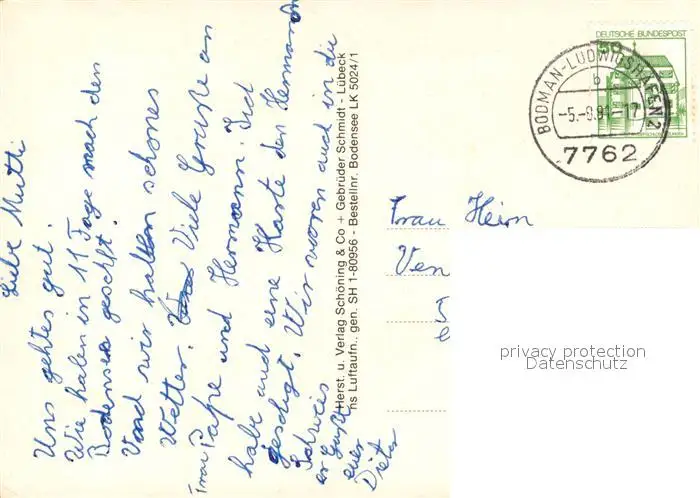 Liebe Mutti
Uns gehtes gut.
Wie haben in 11 Tage nach den
Bodensee geschft.
Vnd wir hatten schönes
Wetter. Viele Grüße an
Frau Pape und Hermann. Ich
habe auch eine Karte den Hermann
geschigt. Wir waren auch in die
Schweis
er Grüßt
euer
Dieter
Herst. u. Verlag Schöning & Co + Gebrüder Schmidt - Lübeck
ns Luftaufn.. gen. SH 1-80956 - Bestellnr. Bodensee LK 5024/1
DEUTSCHE BUNDESPOST
50
BODMAN-LUDWIGSHAFEN 2
b
-5.-8.81-17
7762
Frau Heim
Ven
privacy protection
Datenschutz